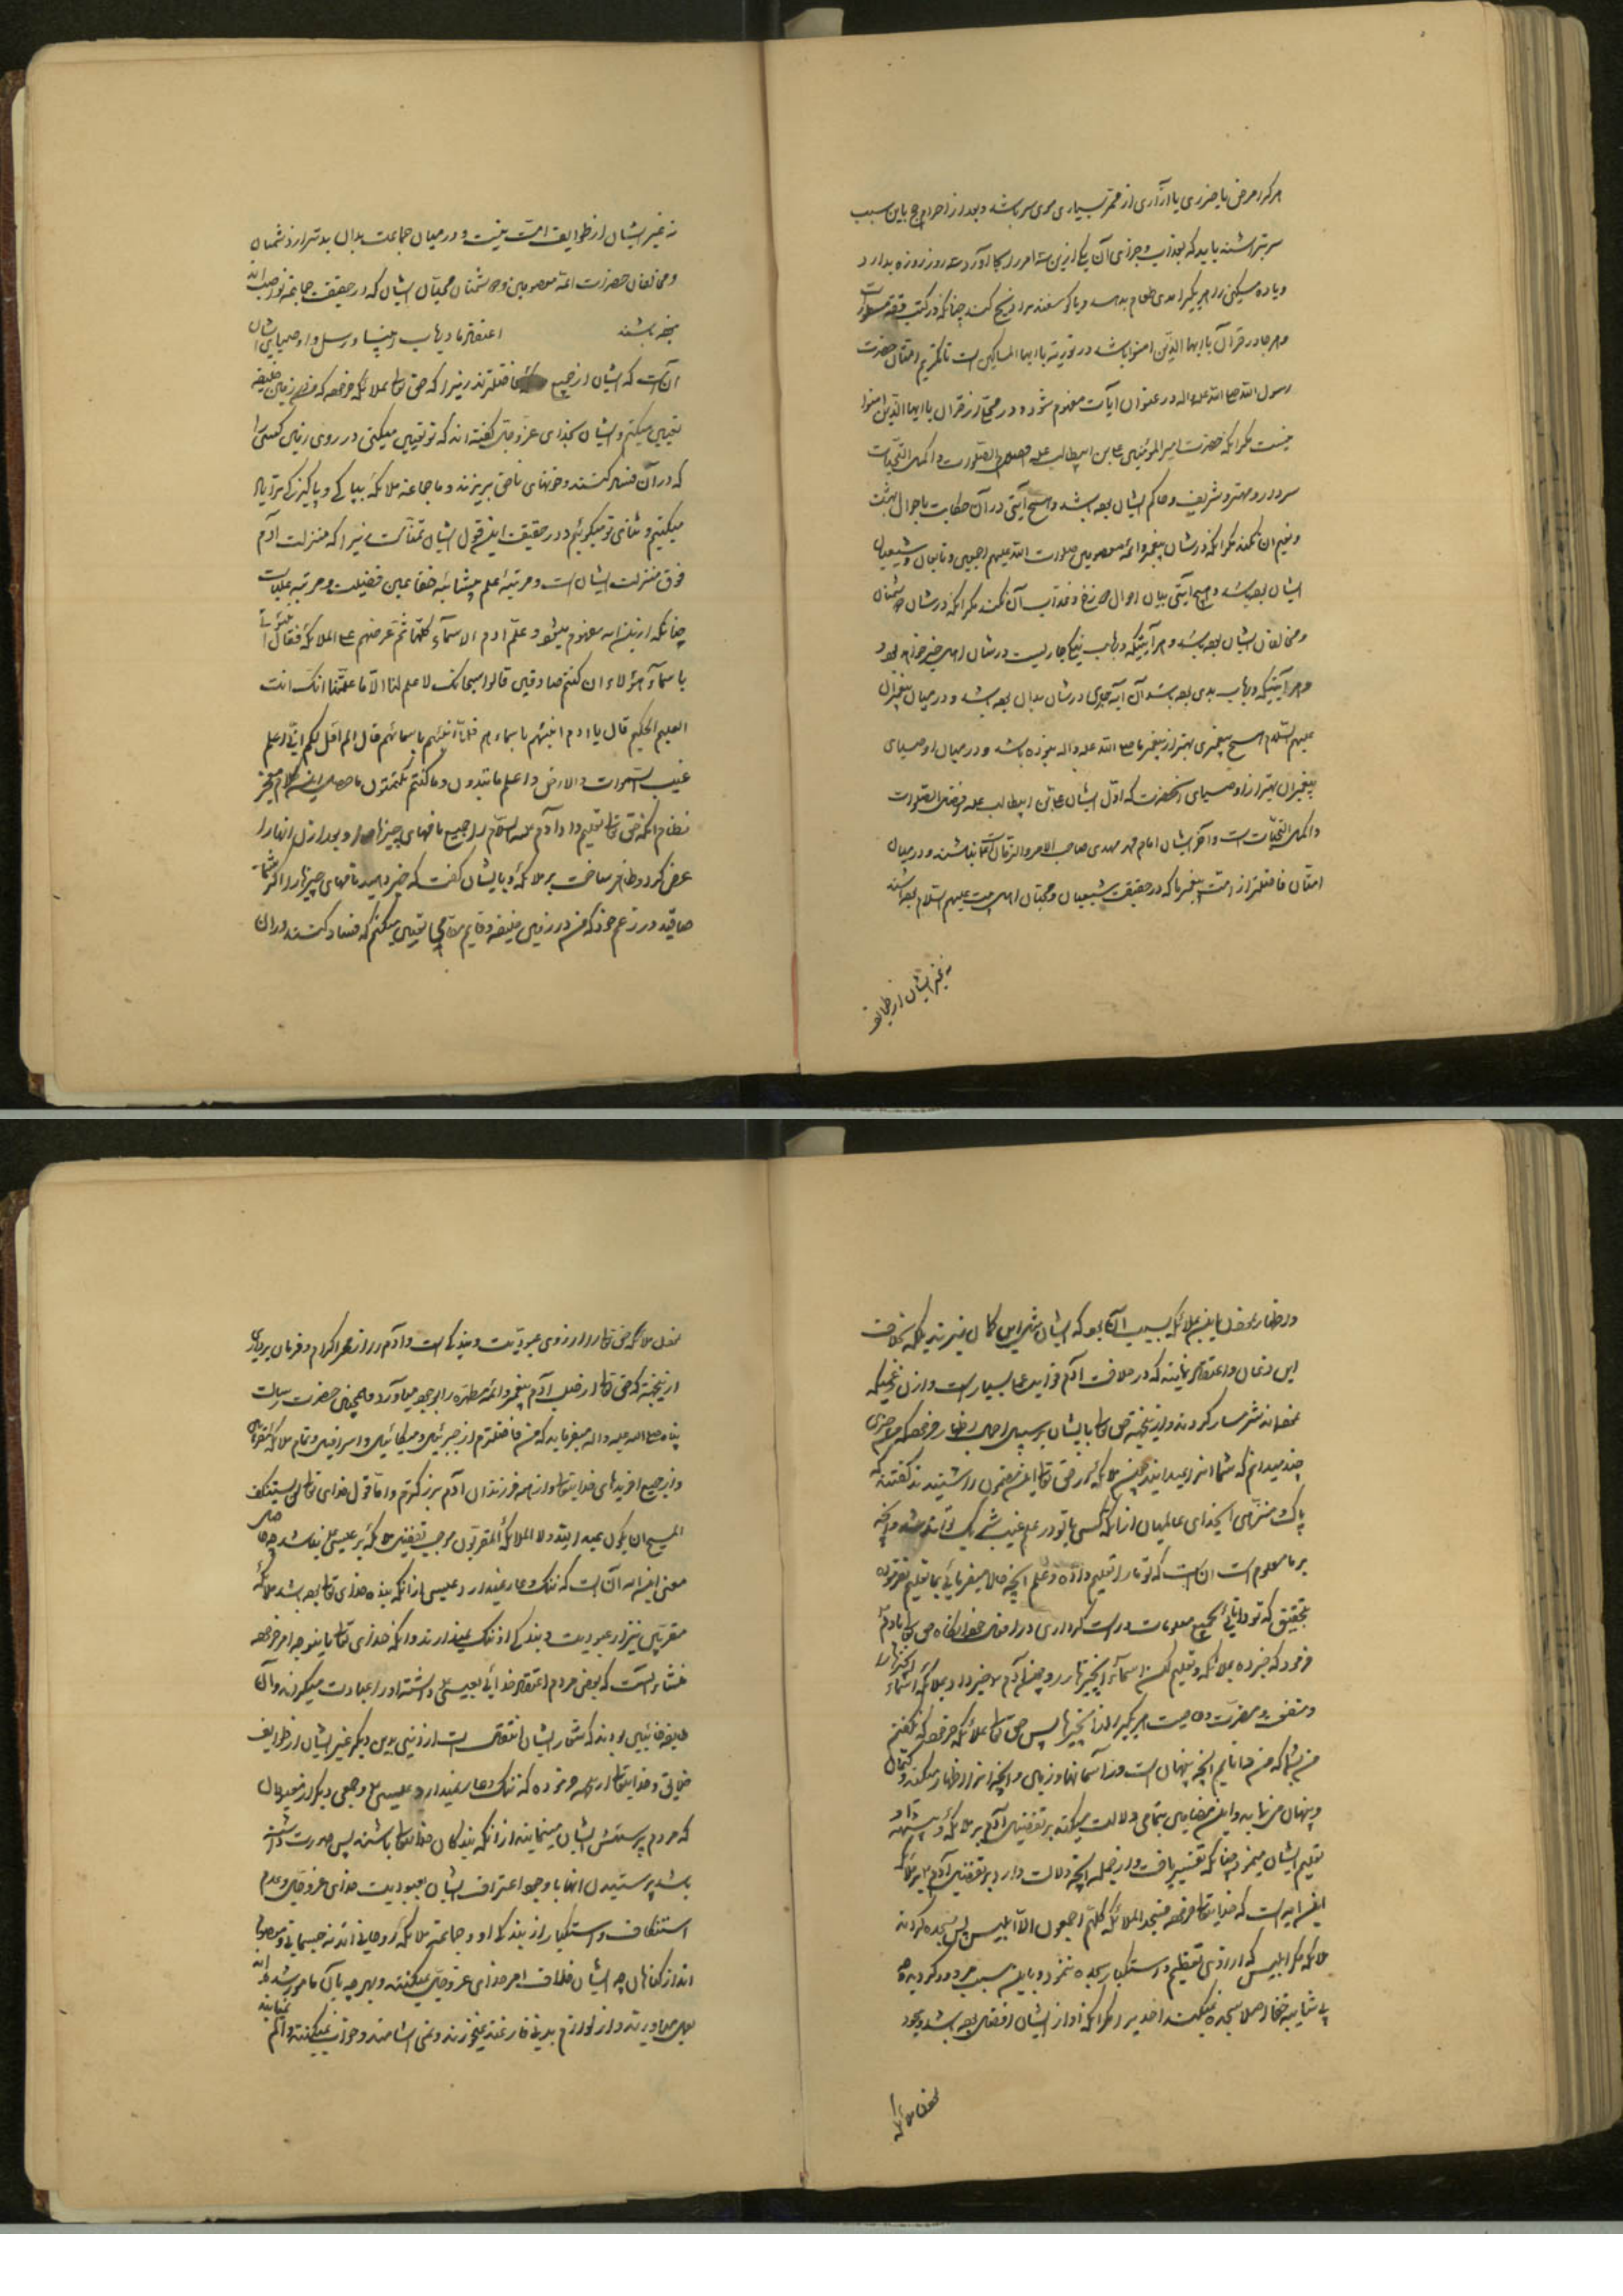 هر که را مرضی یا ضرری یا آزاری از ممر بسیاری موی سر باشد و بعد از احرام حج باین سبب
سر تراشند باید که بعد از آن بجزای آن یکی ازین سه امر را بجا آورد سه روز روزه بدارد
و یا ده مسکین را هر یک مدی طعام بدهد و یا گوسفندی را ذبح کند چنانکه در کتب فقه مسطور است
و هر جا در قرآن یا ایها الذین امنوا باشد در توریة یا ایها المساکین است تا تکریم امتثال حضرت
رسول الله صلی الله علیه واله در عنوان آیات مفهوم شود و در محلی از قران یا ایها الذین امنوا
نیست مگر آنکه حضرت امیر المؤمنین علی بن ابیطالب علیه افضل الصلوات و اکمل التحیات
سردار و مهتر و شریف و حاکم ایشان بوده باشد و هیچ آیتی در آن حکایت باحوال بهشت
و نعیم ان نکند مگر آنکه در شان پیغمبر و ائمه معصومین صلوات الله علیهم اجمعین و تابعان و شیعیان
ایشان بوده باشد و هیچ آیتی بیان احوال دوزخ و عذاب آن نکند مگر آنکه در شان دشمنان
و مخالفان ایشان بوده باشد و هر آیتیکه در باب نیکی جاریست در شان اهل خیر خواهد بود
و هر آیتیکه در باب بدی بوده باشد آن آیه جاری در شان بدان بوده باشد و در میان پیغمبران
علیهم السلام هیچ پیغمبری بهتر از پیغمبر ما صلی الله علیه واله نبوده باشد و در میان اوصیای
پیغمبران بهتر از اوصیای آنحضرت که اول ایشان علی بن ابیطالب علیه افضل الصلوات
و اکمل التحیات است و آخر ایشان امام محمد مهدی صاحب الامر والزمان است نباشند و در میان
امتان فاضلتر از امت پیغمبر ما که در حقیقت شیعیان و محبان اهل بیت علیهم السلام بوده باشند
نه غیر ایشان از طوایف
نه غیر ایشان از طوایف امت نیست و در میان جماعت بدان بدتر از دشمنان
و مخالفان حضرات ائمه معصومین و دشمنان محبان ایشان که در حقیقت جماعة نواصب اند
نبوده باشند اعتقاد ما در باب انبیا و رسل و اوصیای ایشان
آن است که ایشان از جمیع ملائکه فاضلترند زیرا که حق تعالی بملائکه فرموده که من در زمین خلیفه
تعیین میکنم و ایشان بخدای عز و جل گفته اند که تو تعیین میکنی در روی زمین کسی را
که در آن فساد کنند و خونهای ناحق بریزند و ما جماعة ملائکه بپاکی و پاکیزگی ترا یاد
میکنیم و ثنای تو میگوئیم و در حقیقت این قول ایشان تمناست زیرا که منزلت آدم
فوق منزلت ایشان است و مرتبه علم بیشائبه خفا عین فضیلت و مرتبه علیاست
چنانکه از این ایه مفهوم میشود و علم ادم الاسمآء کلها ثم عرضهم علی الملائکة فقال انبئونی
باسمآء هؤلاء ان کنتم صادقین قالوا سبحانک لا علم لنا الا ما علمتنا انک انت
العلیم الحکیم قال یا ادم انبئهم باسمائهم فلما انبئهم باسمائهم قال الم اقل لکم انی اعلم
غیب السموات والارض واعلم ما تبدون وما کنتم تکتمون ما حصل این کلام معجز
نظام آنکه حق تعالی تعلیم داد آدم علیه السلام را جمیع نامهای چیزها را و بعد از آن انها را
عرض کرد و ظاهر ساخت بر ملائکه و بایشان گفت که خبر دهید نامهای چیزها را اگر شما
صادقید در زعم خود که من در زمین خلیفه و قایم مقامی تعیین میکنم که فساد کنند در ان
و اظهار بملائکه بسبب آن بود که ایشان کمان نبرند بلکه بخلاف
این و اعتقاد نمایند که در خلافت آدم فواید بسیار است و از آن
شرمسار گردند و ازینجهة حق تعالی بایشان بر سبیل اجمال اظهار فرموده که من چیزی
چند میدانم که شما آنرا نمیدانید چون ملائکه از حق تعالی این مضمون را شنیدند گفتند که
پاک و منزهی ایخدای عالمیان از آنکه کسی با تو در علم غیب شریک تواند شد و آنچه
بر ما معلوم است آن است که تو ما را تعلیم داده و علم آنچه حالا میفرمائی بما تعلیم نفرموده
بتحقیق که تو دانائی بجمیع معلومات و راست کرداری در افعال خود آنگاه حق تعالی بادم
فرمود که خبر ده بملائکه و تعلیم کن اسمآء آن چیزها را و چون آدم خبر داد بملائکه اسماء آنچیزها را
و منفعت و مضرت و خاصیت هر یک را از آنچیزها پس حق تعالی بملائکه فرموده که نگفتم
من بشما که من دانایم آنچه پنهان است در آسمانها و زمین و آنچه را اظهار میکنند و کتمان
و پنهان می نمایند و این مضامین بتمامی دلالت میکند بر تفضیل آدم بر ملائکه
تعلیم ایشان مینمود چنانکه تفسیر یافت و از جمله آنچه دلالت دارد بر تفضیل آدم بر ملائکه
این ایه است که خدایتعالی فرموده فسجد الملائکة کلهم اجمعون الا ابلیس پس سجده کردند
ملائکه مگر ابلیس که از روی تعظیم و استکبار سجده ننمود و باین سبب مردود گردید
بی شایبه خفا اصلا سجده نمیکنند احدی را مگر آنکه او از ایشان افضل بوده باشد و سجود
بودن ملائکه
ملائکه حق تعالی را از روی عبودیت و بندگی است و آدم را از راه اکرام و فرمان برداری
ازینجهة که حق تعالی از صلب آدم پیغمبر و ائمه مطهره را بوجود میاورد و همچنین حضرت رسالت
پناه صلی الله علیه واله میفرماید که من فاضلترم از جبرئیل و میکائیل و اسرافیل و تمام ملائکه مقربین
و از جمیع افریدهای خدایتعالی و از همه فرزندان آدم بزرگترم و اما قول خدای تعالی لن یستنکف
المسیح ان یکون عبدا لله ولا الملائکة المقربون موجب تفضیل ملائکه بر عیسی نمیباشد چه حاصل
معنی این ایه آن است که ننگ و عار نمیدارد عیسی از آنکه بنده خدای تعالی بوده باشد ملائکه
مقربین نیز از عبودیت و بندگی او ننگ نمیدارند و آنکه خدای تعالی باینوجه امر فرموده
منشاء انست که بعضی مردم اعتقاد خدائی بعیسی داشتند او را عبادت میکردند و آن
طایفه بودند که شعار ایشان است از نبی دین دیگر غیر ایشان از طوایف
خدایتعالی فرموده که ننگ و عار نمیدارد عیسی و جمعی دیگر از
که مردم پرستش ایشان مینمایند از آنکه بندگان خدایتعالی باشند پس صورت داشته
باشد پرستیدن انها با وجود اعتراف ایشان بعبودیت خدای عز وجل و عدم
استنکاف و استکبار از بندگی او و جماعة ملائکه روحانی اند نه جسمانی و معصوم
اند از گناهان چه ایشان خلاف امر خدای عز وجل نمیکنند و بهر چه بآن مامور شده اند
بعمل میاورند و از لوازم بدنی فارغند نمیخورند و نمی آشامند و خواب نمیکنند و الم